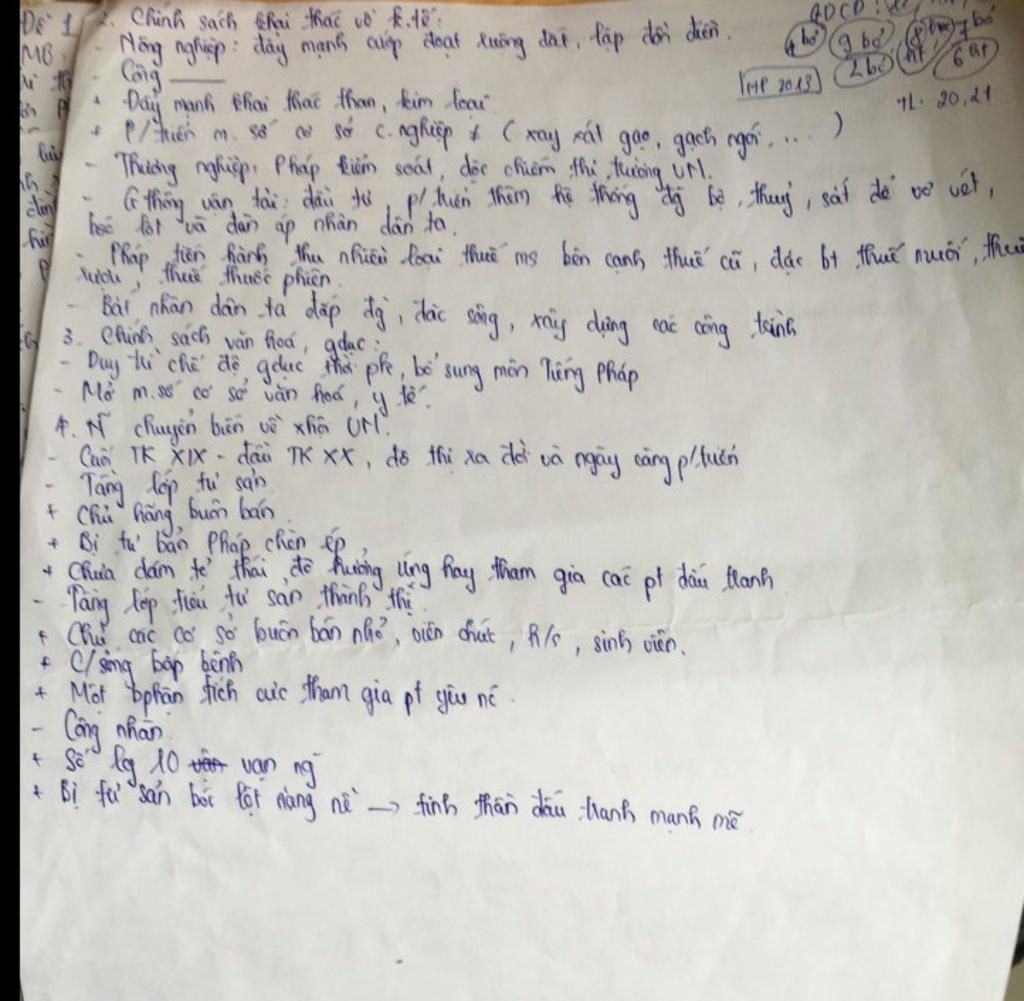 Đề 1
MB:
2. Chính sách khai thác về k.tế:
GDCD:
4 bỏ
9 bỏ
2 bỏ
6 ht
7 bỏ
HP 2013
TL: 20, 21
- Nông nghiệp: đẩy mạnh cướp đoạt ruộng đất, lập đồn điền.
- Công ——
+ Đẩy mạnh khai thác than, kim loại
+ P/triển m. số cơ sở c.nghiệp ≠ (xay xát gạo, gạch ngói, ... )
- Thương nghiệp: Pháp kiểm soát, độc chiếm thị trường VN.
- Gthông vận tải: đầu tư, p/triển thêm hệ thống đg bộ, thuỷ, sắt để vơ vét,
bóc lột và đàn áp nhân dân ta.
- Pháp tiến hành thu nhiều loại thuế ms bên cạnh thuế cũ, đặc bt thuế muối, thuế
rượu, thuế thuốc phiện.
- Bắt nhân dân ta đắp đg, đào sông, xây dựng các công trình
3. Chính sách văn hoá, gdục:
- Duy trì chế độ gdục thời pk, bổ sung môn Tiếng Pháp
- Mở m.số cơ sở văn hoá, y tế.
4. N~ chuyển biến về xhội VN.
- Cuối TK XIX - đầu TK XX, đô thị ra đời và ngày càng p/triển
- Tầng lớp tư sản
+ Chủ hãng buôn bán
+ Bị tư bản Pháp chèn ép
+ Chưa dám tỏ thái độ hưởng ứng hay tham gia các pt đấu tranh
- Tầng lớp tiểu tư sản thành thị
+ Chủ các cơ sở buôn bán nhỏ, viên chức, h/s, sinh viên.
+ C/sống bấp bênh
+ Một bphận tích cực tham gia pt yêu nc.
- Công nhân
+ Số lg 10 vạn ng
+ Bị tư sản bóc lột nặng nề → tinh thần đấu tranh mạnh mẽ.